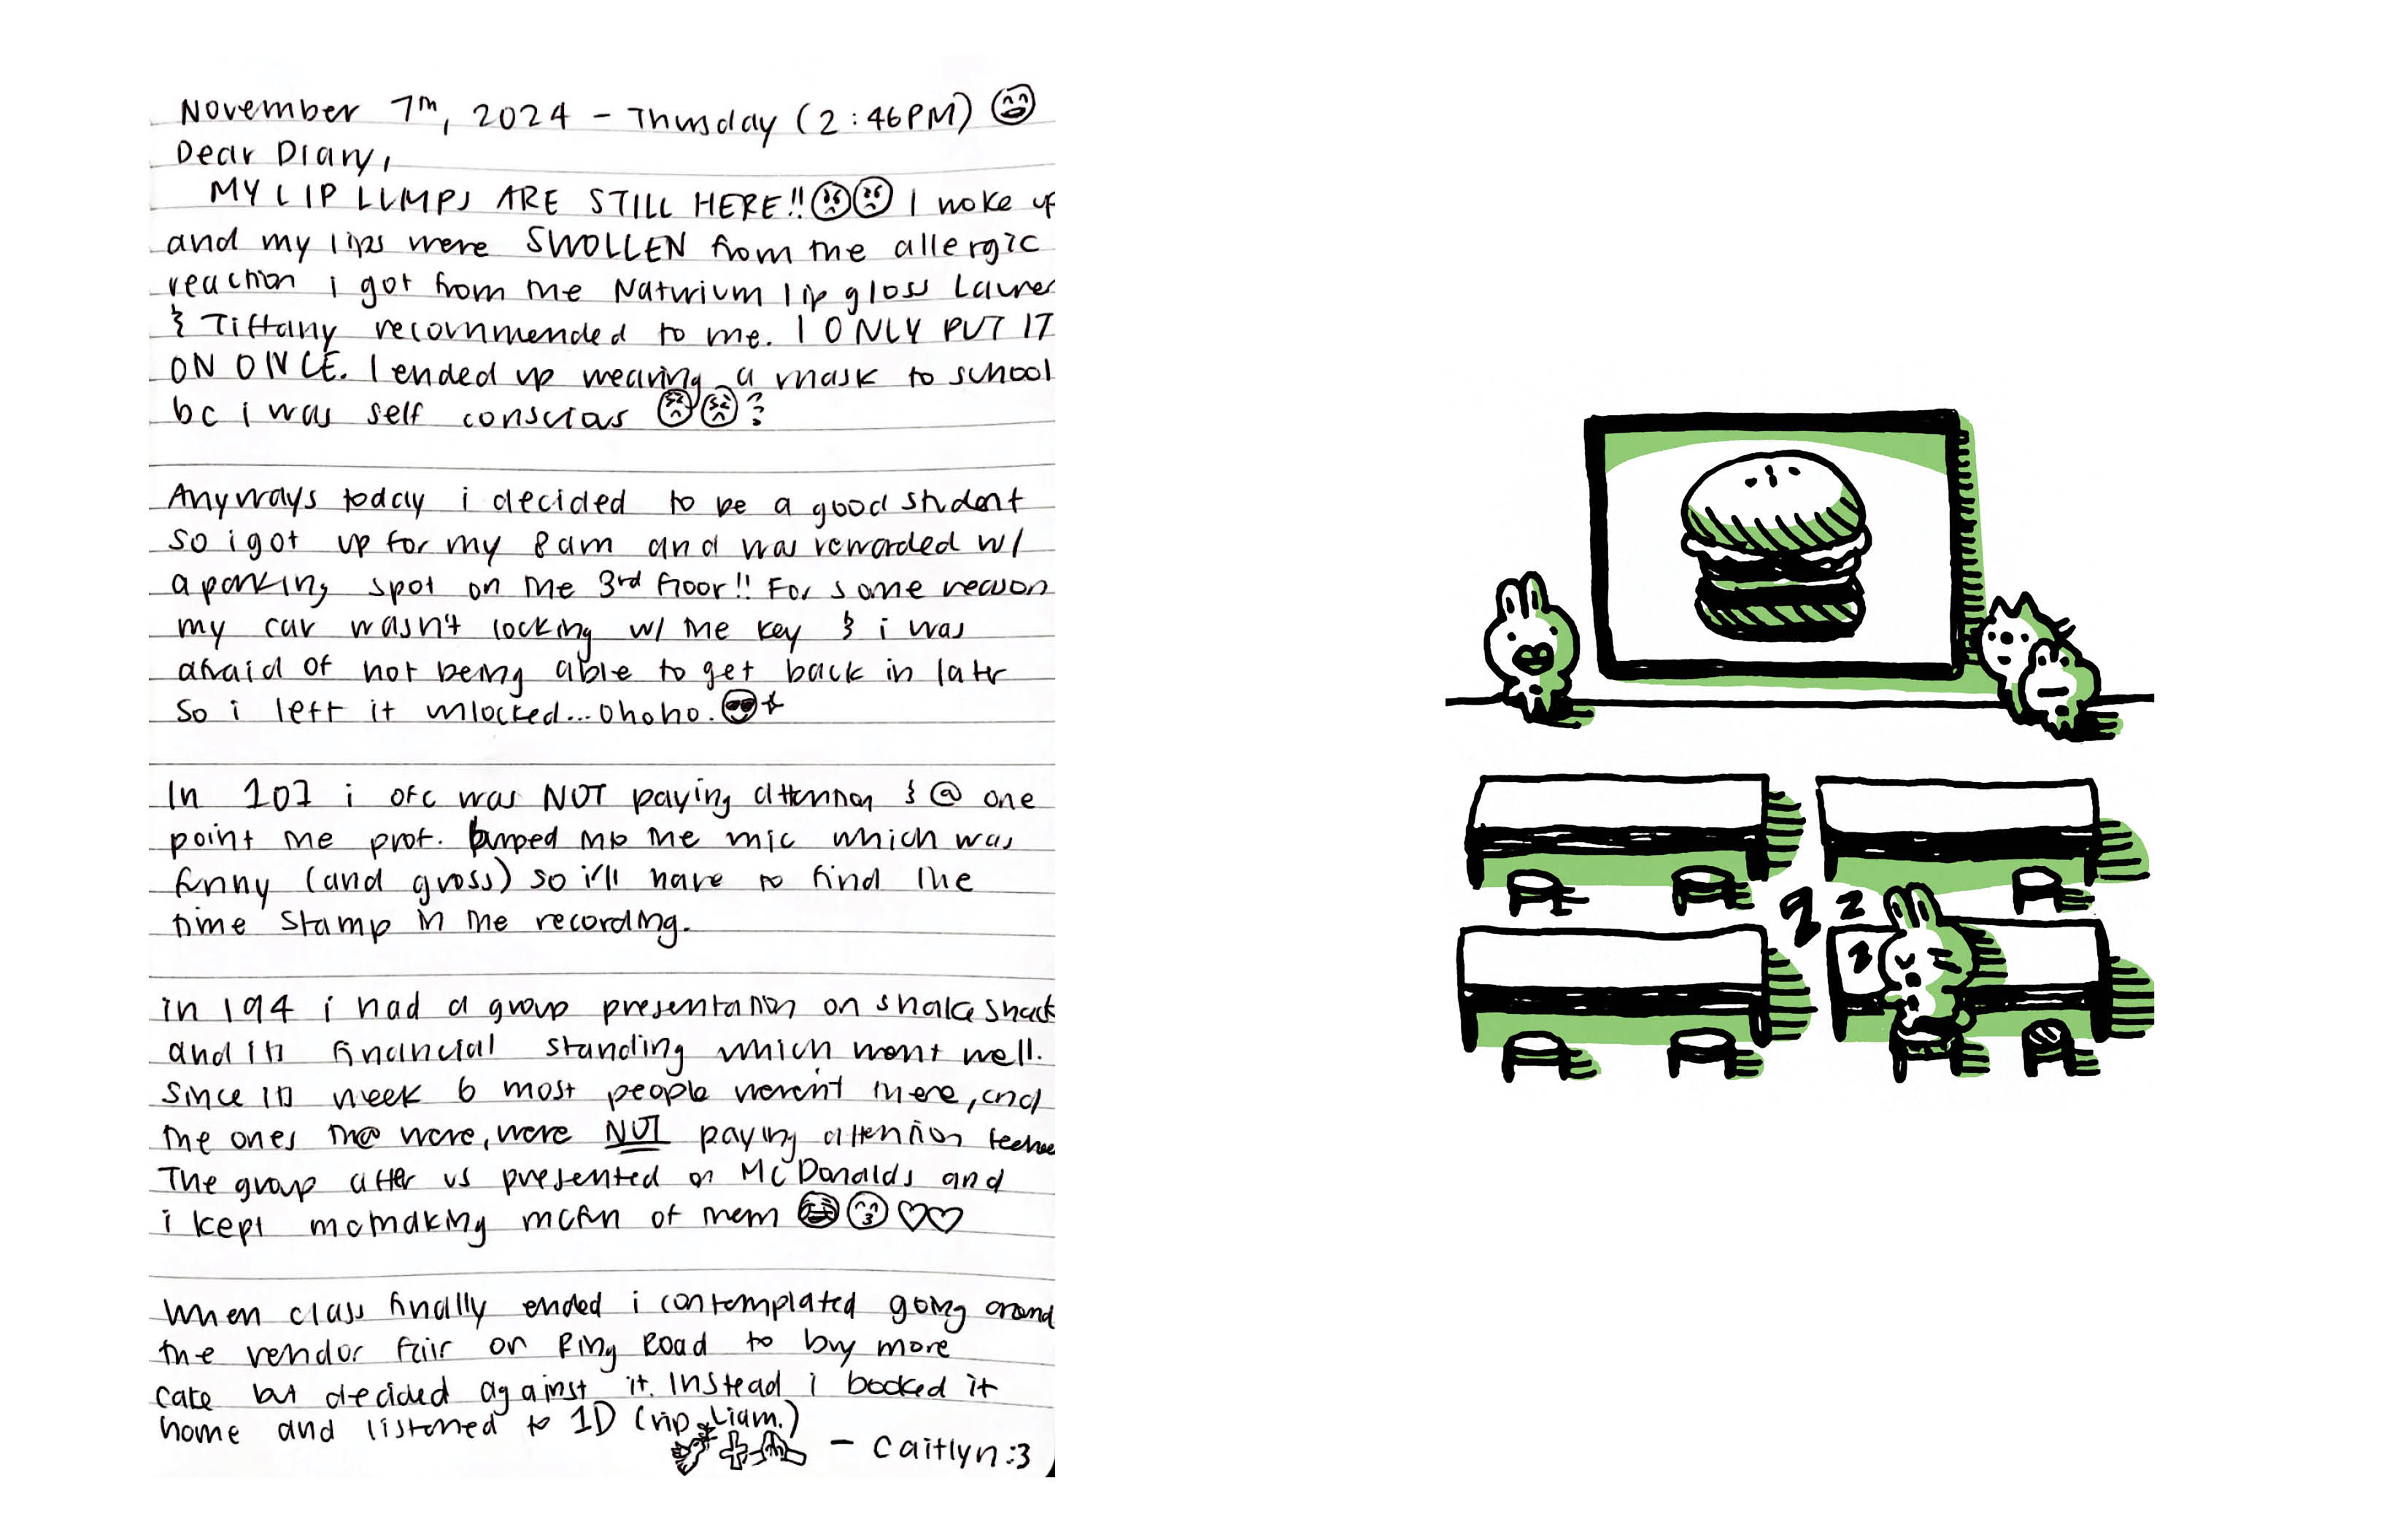 November 7th, 2024 - Thursday (2:46PM)
Dear Diary,
MY LIP LUMPS ARE STILL HERE!! I woke up
and my lips were SWOLLEN from the allergic
reaction i got from the Naturium lip gloss Lauren
& Tiffany recommended to me. I ONLY PUT IT
ON ONCE. I ended up wearing a mask to school
bc i was self conscias
Anyways today i decided to be a good student
so i got up for my 8am and was rewarded w/
a parking spot on the 3rd floor!! For some reason
my car wasn't locking w/ the key & i was
afraid of not being able to get back in later
so i left it unlocked... ohoho.
In 107 i ofc was NOT paying attention & @ one
point the prof. burped into the mic which was
funny (and gross) so i'll have to find the
time stamp in the recording.
in 194 i had a group presentation on shake shack
and its financial standing which went well.
Since its week 6 most people weren't there, and
the ones th@ were, were NOT paying attention teehee
The group after us presented on McDonalds and
i kept mcmaking mcfun of them ♡♡
When class finally ended i contemplated going around
the vendor fair on Ring Road to buy more
cake but decided against it. Instead i booked it
home and listened to 1D (rip Liam.)
- Caitlyn :3
z z z